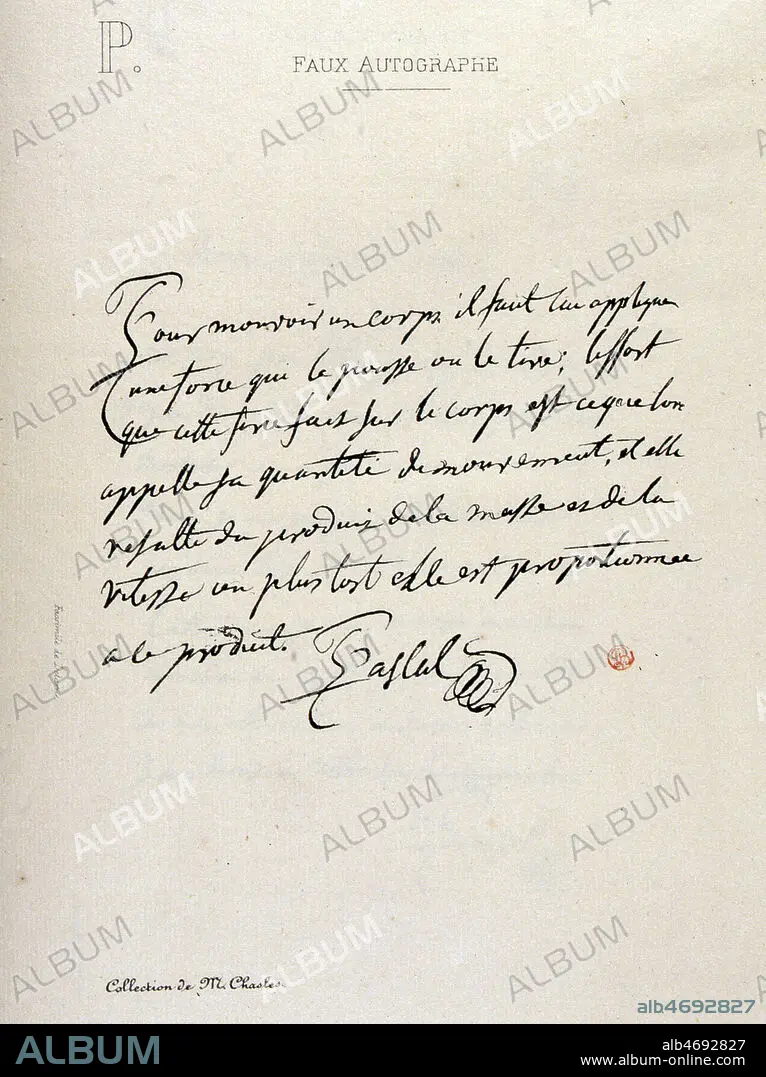 P.
FAUX AUTOGRAPHE
Pour mouvoir un corps il faut lui appliquer
une force qui le pousse ou le tire; leffort
que cette force fait sur le corps est ce que lon
appelle sa quantité de mouvement, et elle
resulte du produit de la masse et de la
vitesse ou plustost elle est proportionnee
a ce produit. Pascal
Facsimile de
Collection de M. Chasles.
ALBUM
alb4692827
ALBUM
alb4692827
www.album-online.com